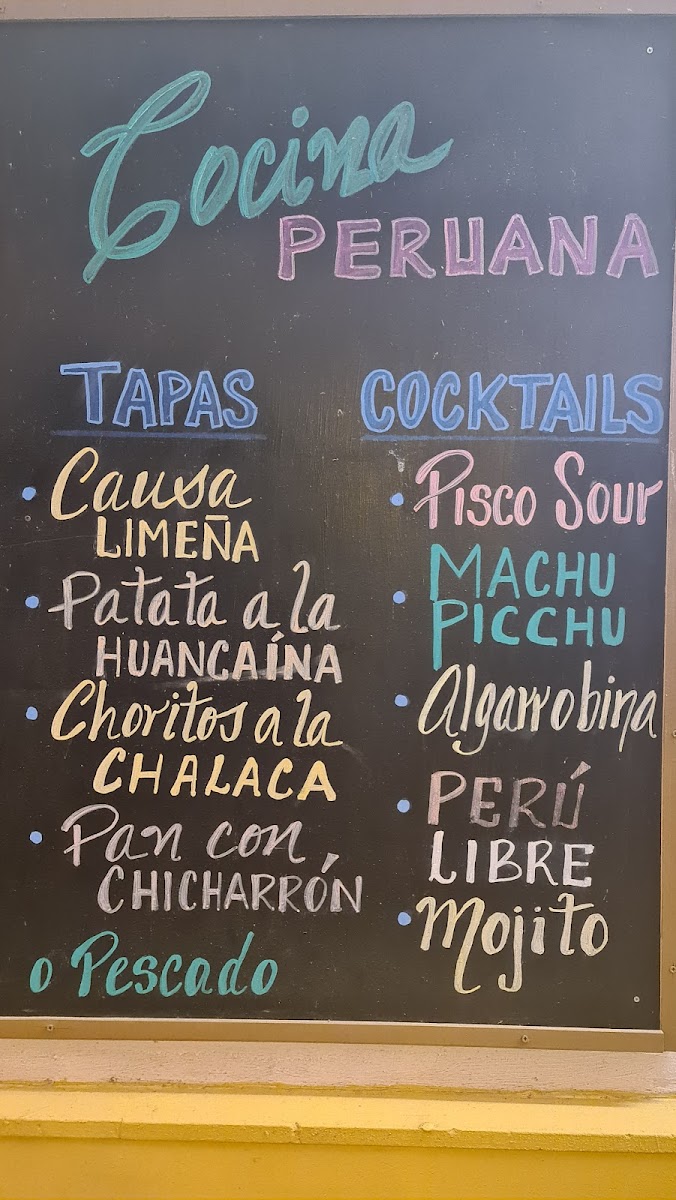 Cocina
PERUANA
TAPAS
• Causa
LIMEÑA
• Patata a la
HUANCAÍNA
• Choritos a la
CHALACA
• Pan con
CHICHARRÓN
o Pescado
COCKTAILS
• Pisco Sour
• MACHU
PICCHU
• Algarrobina
• PERÚ
LIBRE
• Mojito